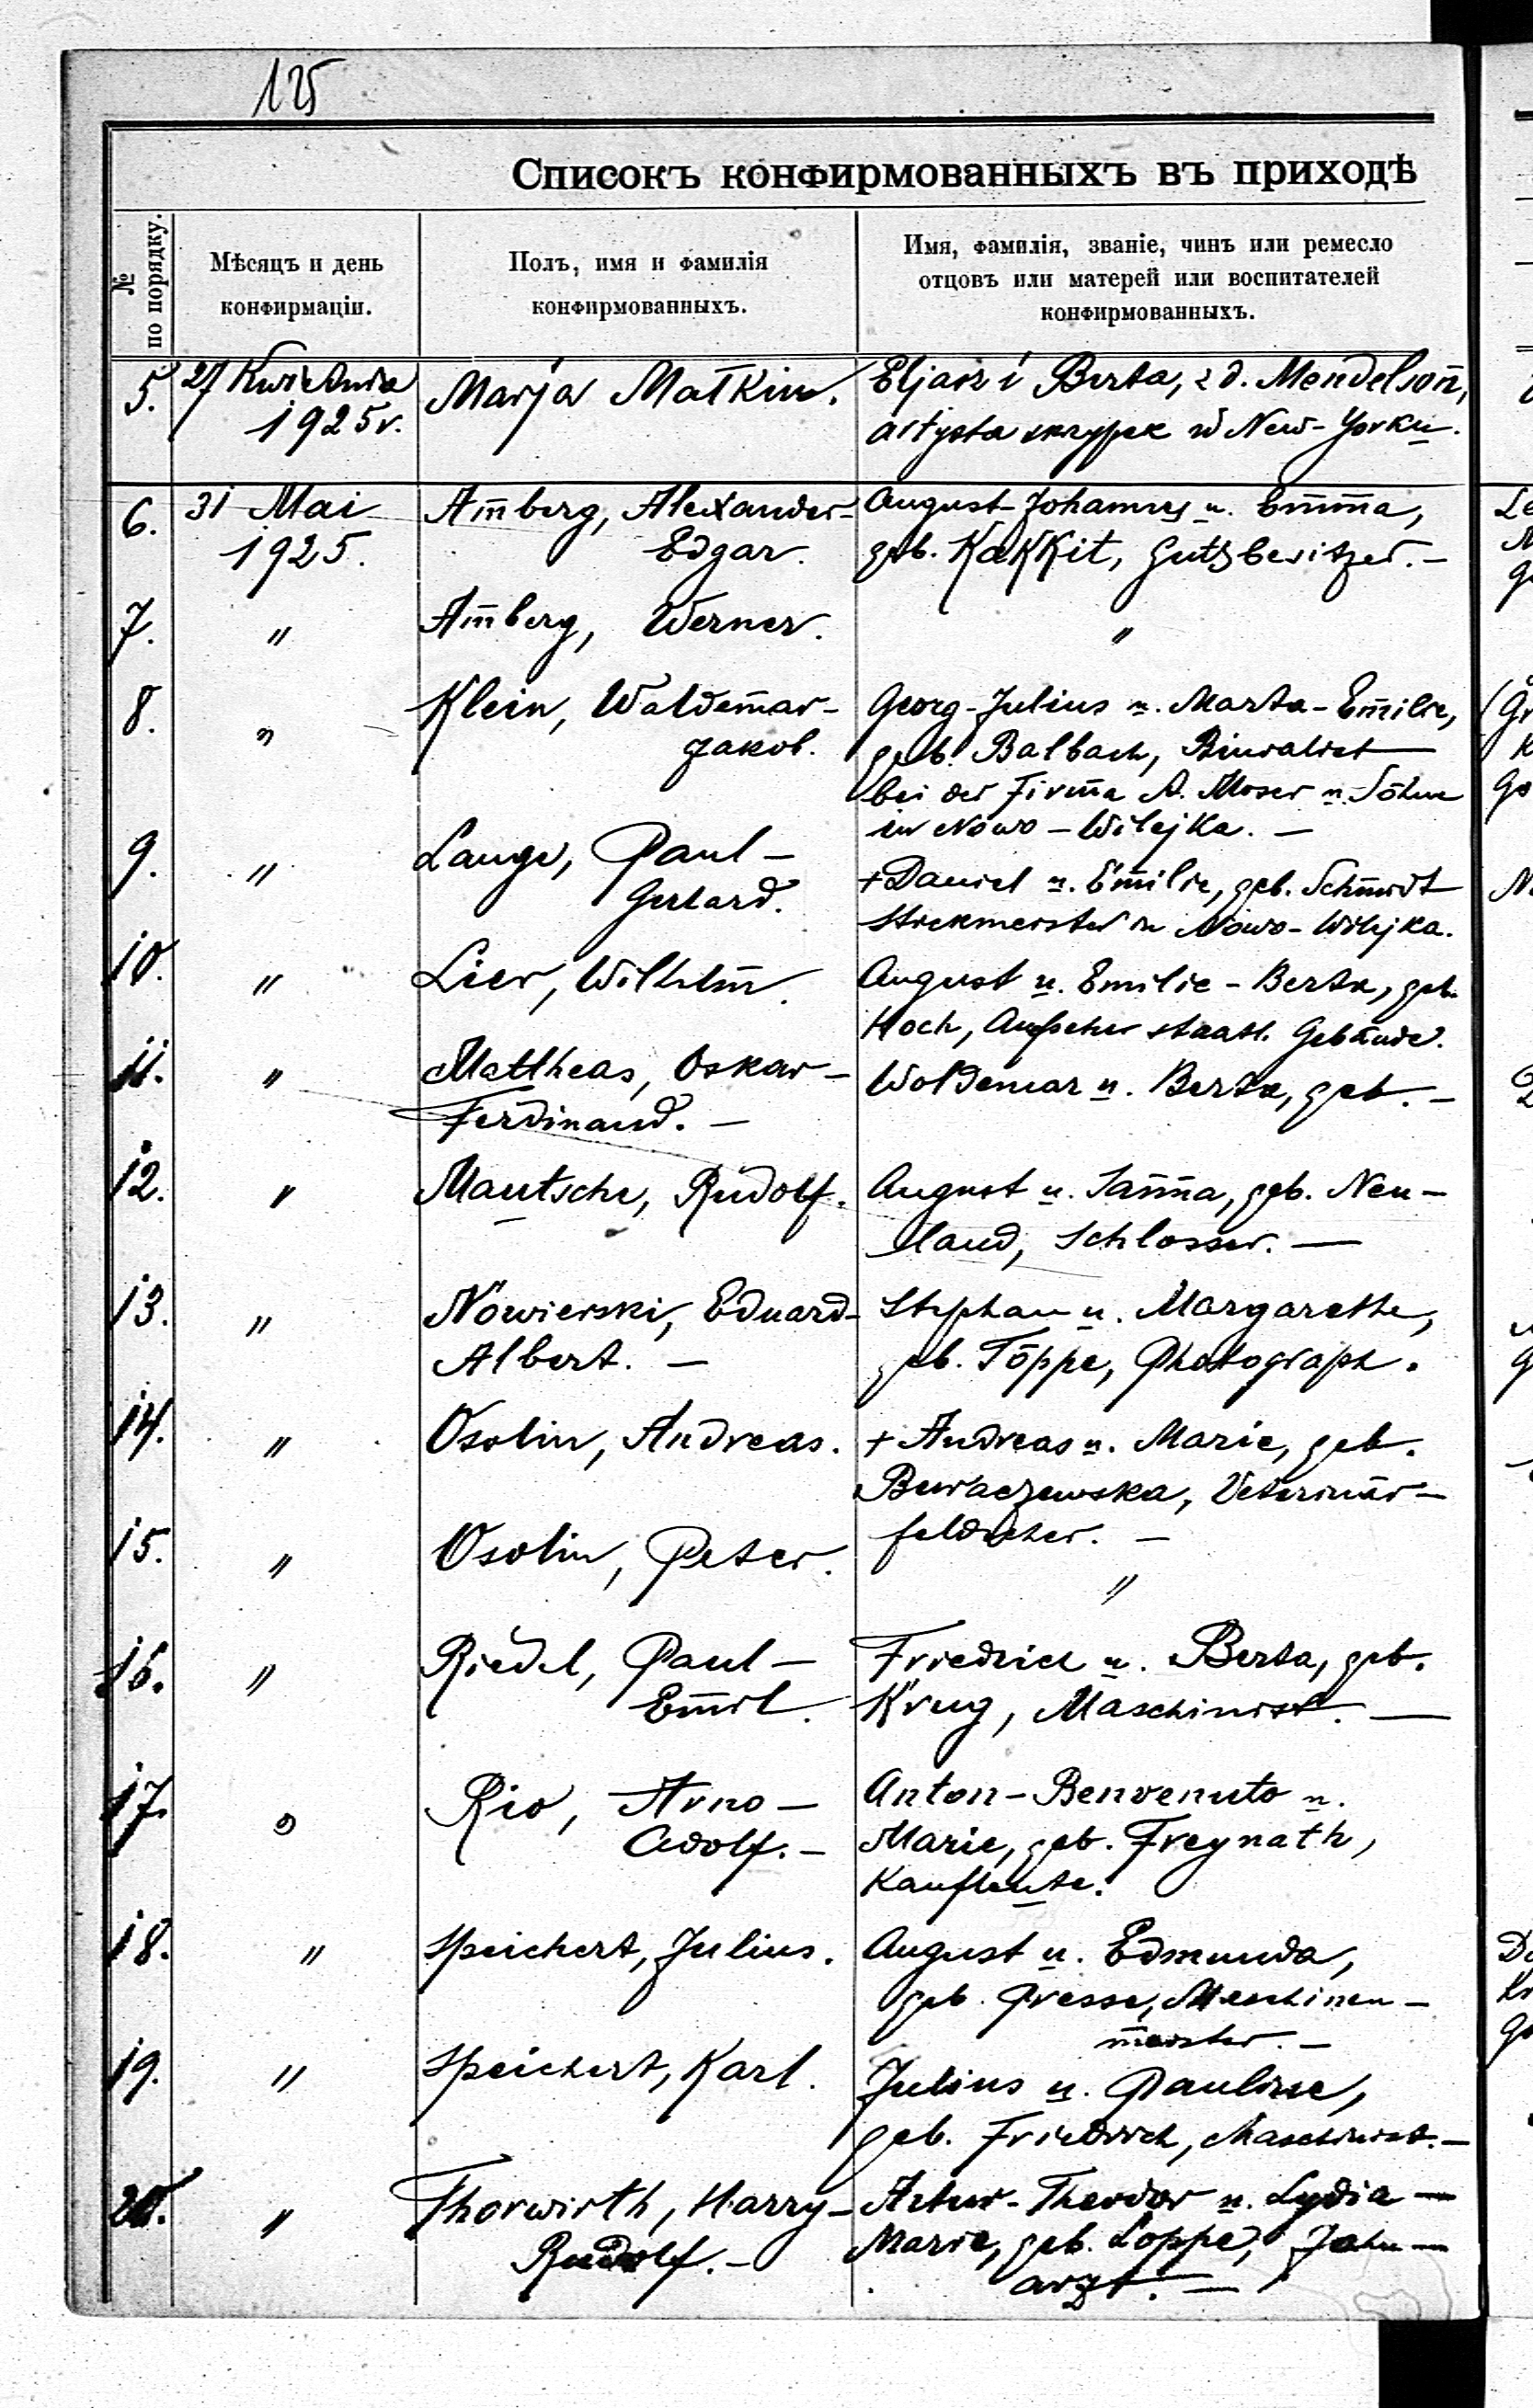 125
Списокъ конфирмованныхъ въ приходѣ
№ по порядку.
Мѣсяцъ и день
конфирмаціи.
Полъ, имя и фамилія
конфирмованныхъ.
Имя, фамилія, званіе, чинъ или ремесло
отцовъ или матерей или воспитателей
конфирмованныхъ.
5. 27 Kwietnia Marja Matkin. Eljasz i Berta, z d. Mendelson,
1925 r. artysta skrzypek w New-Yorku.
6. 31 Mai Amberg, Alexander- August-Johannes u. Emma,
1925. Edgar. geb. Kakkit, Gutsbesitzer. -
7. " Amberg, Werner. "
8. " Klein, Waldemar- Georg-Julius u. Marta-Emilie,
Jakob. geb. Balbach,
bei der Firma A. Moser u. Söhne
in Nowo-Wilejka. -
9. " Lange, Paul- + Daniel u. Emilie, geb. Schmidt
Gerhard. in Nowo-Wilejka.
10. " Lier, Wilhelm. August u. Emilie-Berta, geb.
Hoch, Aufseher staatl. Gebäude.
11. " Mattheas, Oskar- Woldemar u. Berta, geb. -
Ferdinand. -
12. " Mautsche, Rudolf. August u. Sanna, geb. Neu-
land, Schlosser. -
13. " Nowierski, Eduard- Stephan u. Margarethe,
Albert. - geb. Töppe, Photograph.
14. " Osolin, Andreas. + Andreas u. Marie, geb.
Veterinär-
feldscher. -
15. " Osolin, Peter. "
16. " Riedel, Paul- Friedrich u. Berta, geb.
Emil. Krug, Maschinist. -
17. " Rio, Arno- Anton-Benvenuto u.
Adolf. - Marie, geb. Freynath,
Kaufleute.
18. " Speichert, Julius. August u. Edmunda,
geb. Presse, Maschinen-
meister. -
19. " Speichert, Karl. Julius u. Pauline,
geb. Friedrich, Maschinist. -
20. " Thorwirth, Harry- Artur-Theodor u. Lydia-
Rudolf. - Marie, geb. Loppe, Zahn-
arzt. -